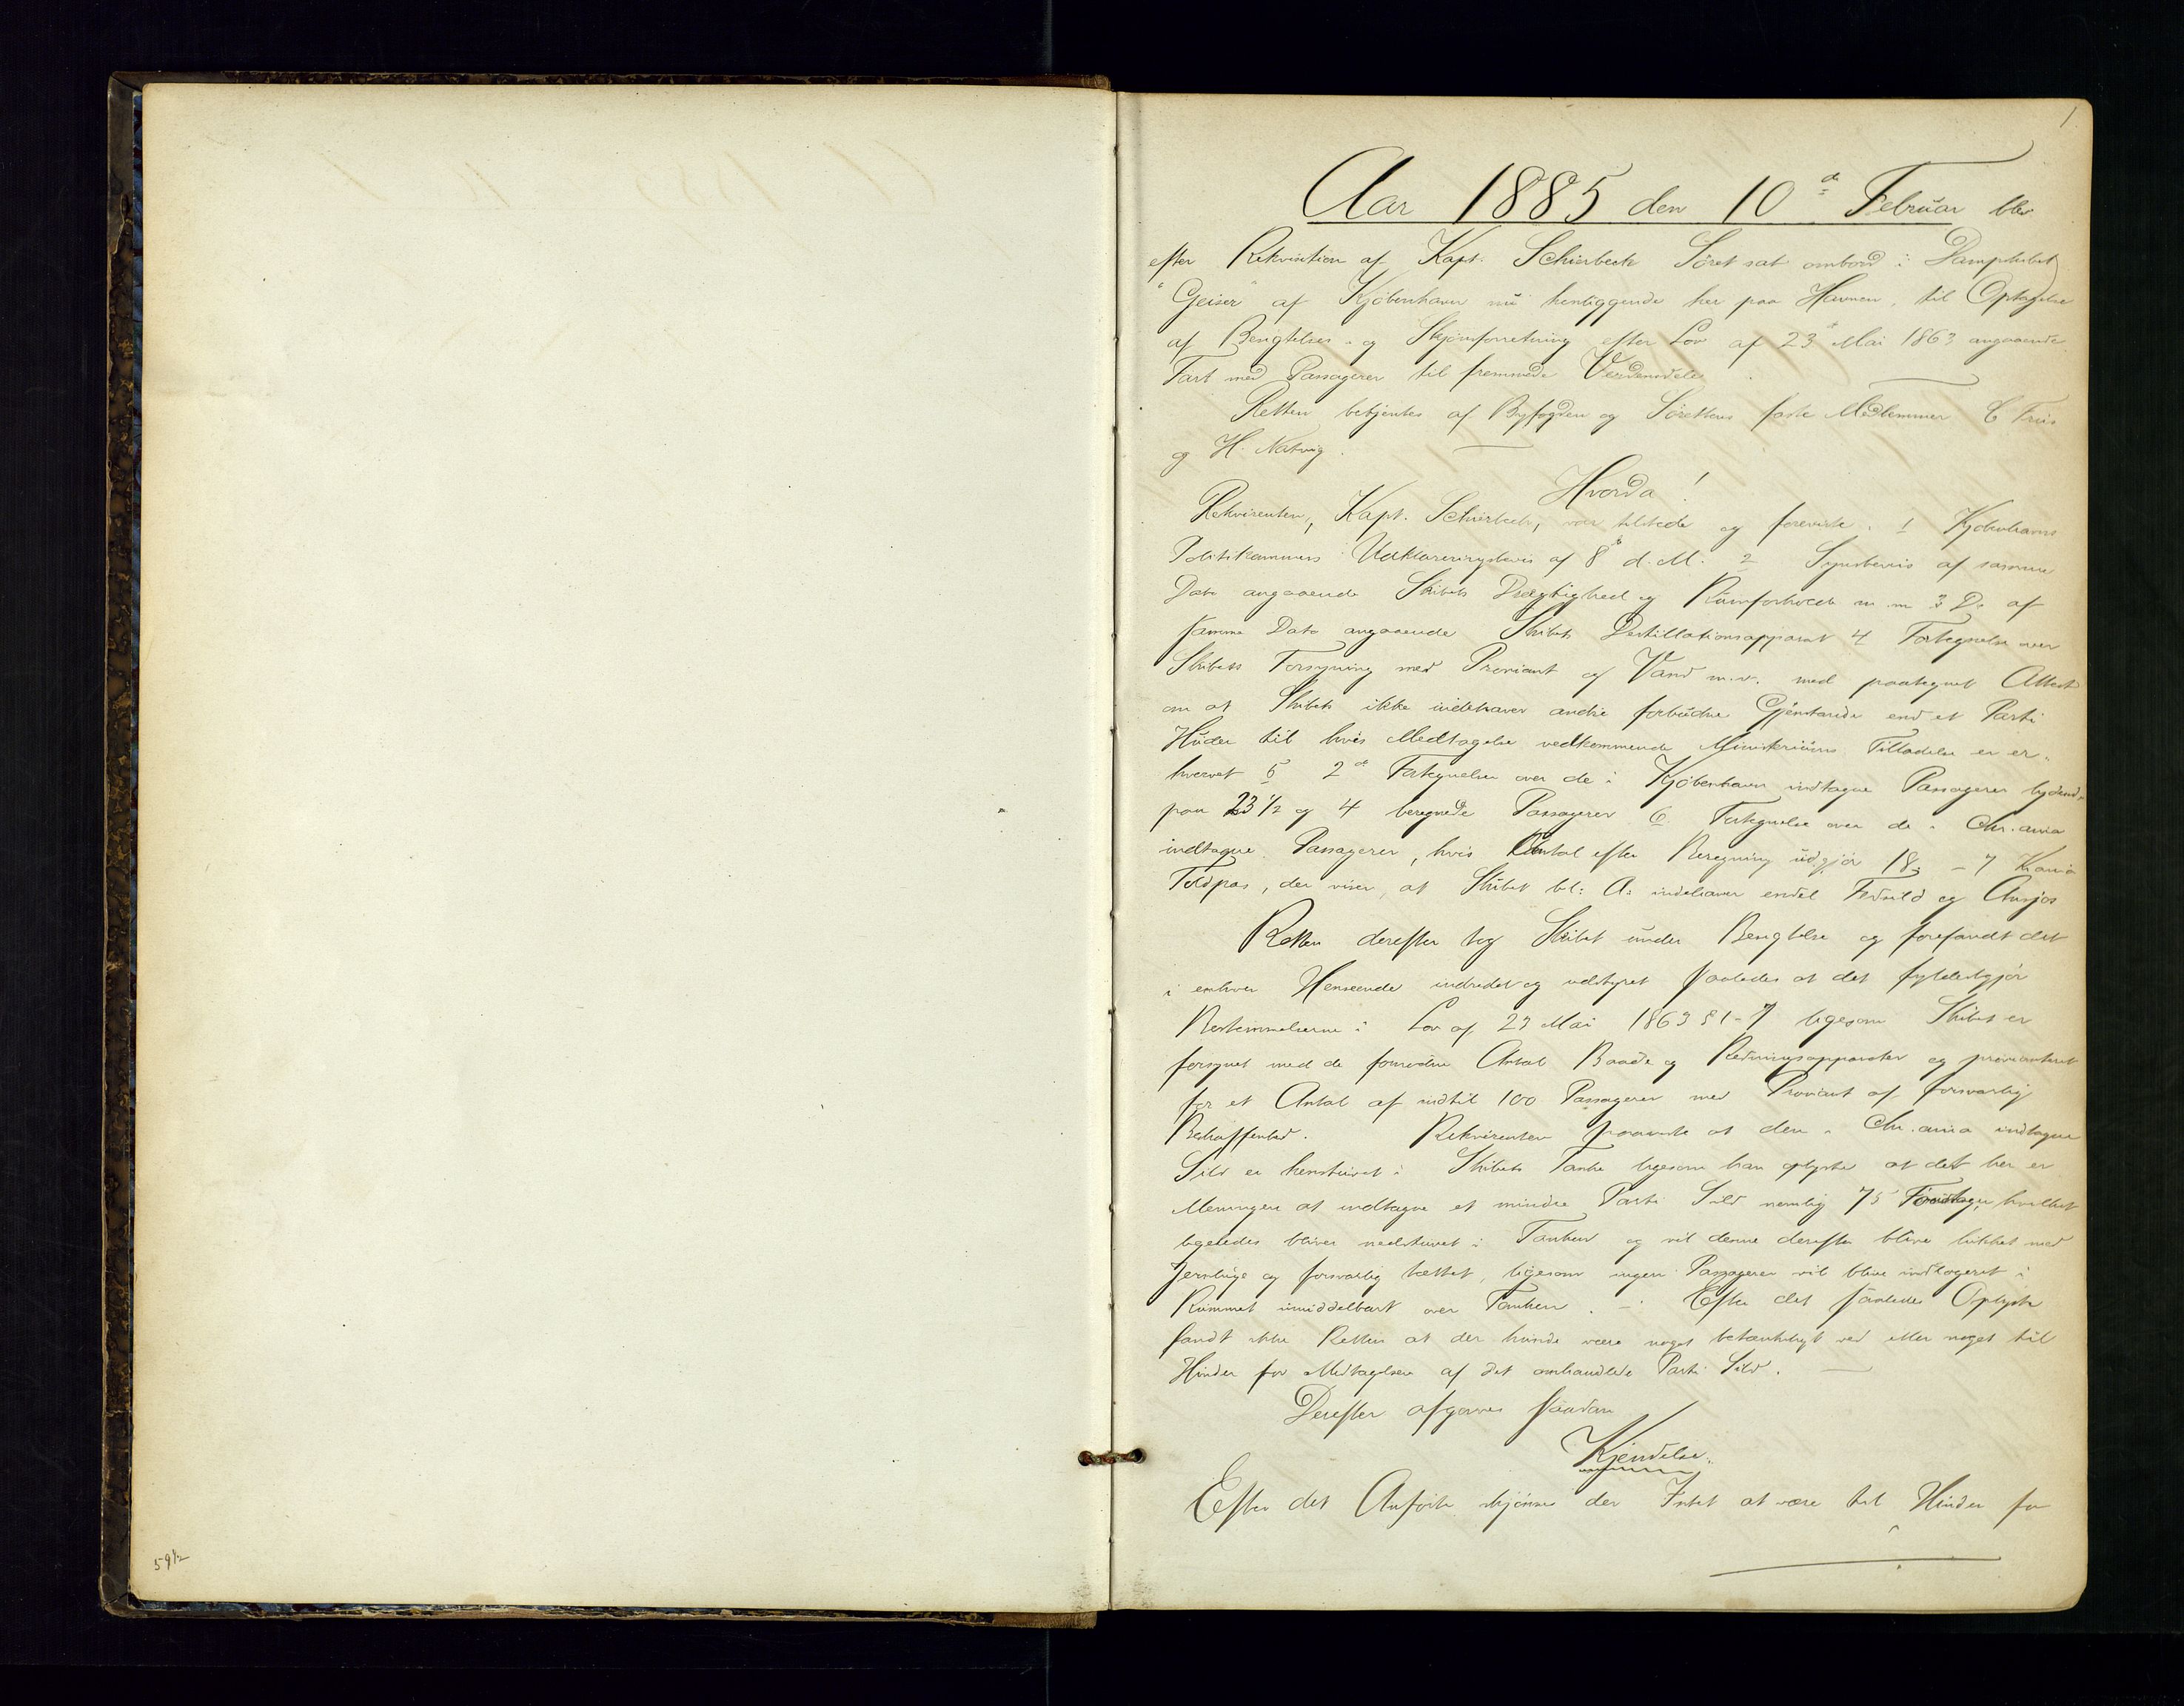 1
Aar 1885 den 10de Februar blev
efter Rekvisition af Kapt. Schierbeck Søret sat ombord i Dampskibet
"Geiser" af Kjøbenhavn nu henliggende her paa Havnen til Optagelse
af Besigtelses- og Skjønsforretning efter Lov af 23de Mai 1863 angaaende
Fart med Passagerer til fremmede Verdensdele.
Retten betjentes af Byfogden og Sørettens faste Medlemmer C Friis
og H. Natvig.
Hvorda!
Rekvirenten, Kapt. Schierbeck, var tilstede og foreviste. 1 Kjøbenhavns
Politikammers Udklareringsbevis af 8de d. M. 2 Synsbevis af samme
Dato angaaende Skibets Drægtighed og Rumforhold m. m 3 Do af
samme Dato angaaende Skibets Destillationsapparat 4 Fortegnelse over
Skibets Forsyning med Proviant og Vand m.v. med paategnet Attest
om at Skibets ikke indehaver andre forbudne Gjenstande end et Parti
Huder til hvis Medtagelse vedkommende Ministeriums Tilladelse er er-
hvervet 5 2de Fortegnelser over de i Kjøbenhavn indtagne Passagerer lydende
paa 23 1/2 og 4 beregnede Passagerer 6 Fortegnelse over de i Chr.ania
indtagne Passagerer, hvis Antal efter Beregning udgjør 18, - 7 Krania
Toldpas, der viser, at Skibet bl: A: indehaver endel Fedsild og Ansjos
Retten derefter tog Skibet under Besigtelse og forefandt det
i enhver Henseende indredet og udstyret saaledes at det fyldestgjør
Bestemmelserne i Lov af 23 Mai 1863 § 1-7 ligesom Skibet er
forsynet med de fornødne Antal Baade og Redningsapparater og provianteret
for et Antal af indtil 100 Passagerer med Proviant af forsvarlig
Beskaffenhed. Rekvirenten paaviste at den i Chr.ania indtagne
Sild er henstuvet i Skibets Tanke ligesom han oplyste at det her er
Meningen at indtagne et mindre Parti Sild nemlig 75 hvilket
ligeledes bliver nedstuvet i Tanken og vil denne derefter blive lukket med
Jernluge og forsvarlig tættet, ligesom ingen Passagerer vil blive indlogeret i
Rummet umiddelbart over Tanken. -: Efter det saaledes Oplyste
fandt ikke Retten at der kunde være noget betænkeligt ved eller noget til
Hinder for Medtagelsen af det omhandlede Parti Sild.
Derefter afgaves saadan
Kjendelse.
Efter det Anførte skjønnes der Intet at være til Hinder for
59 1/2